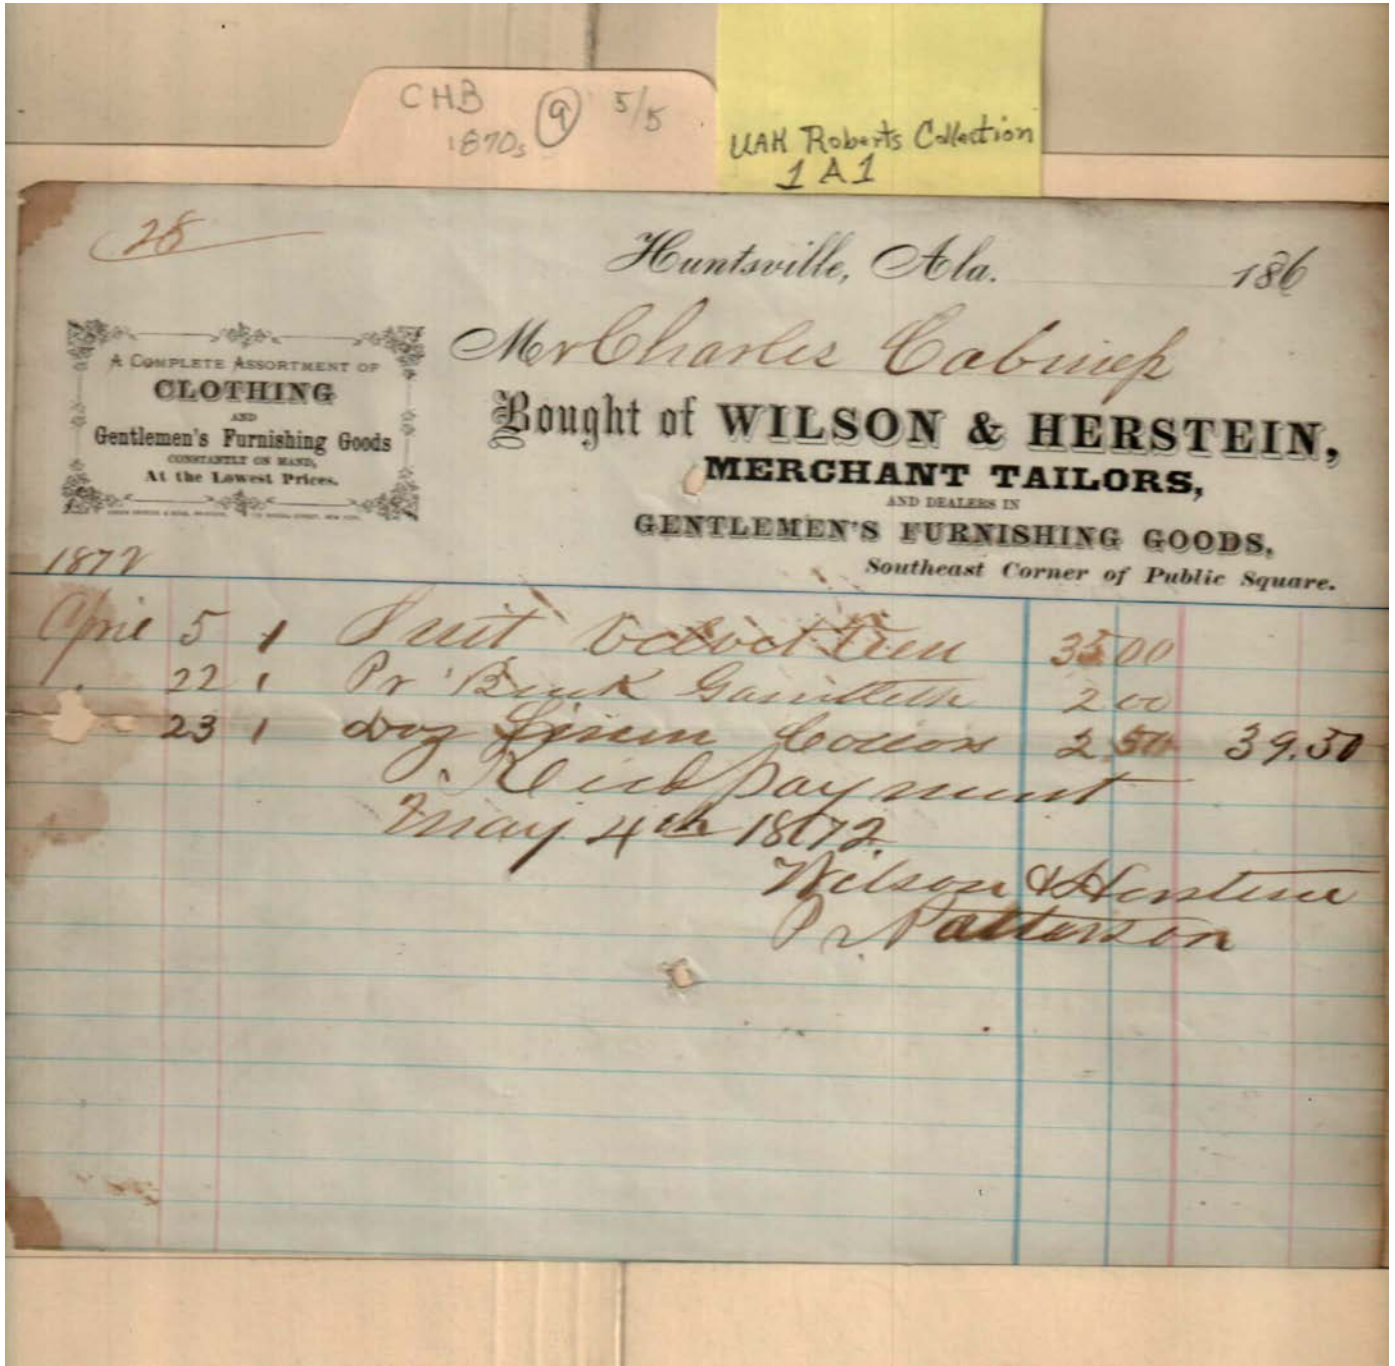 CHB 9 5/5
1870s
UAH Roberts Collection
1A1
28
Huntsville, Ala. 186
Mr Charles Cabiness
A COMPLETE ASSORTMENT OF
CLOTHING
AND
Gentlemen's Furnishing Goods
CONSTANTLY ON HAND,
At the Lowest Prices.
Bought of WILSON & HERSTEIN,
MERCHANT TAILORS,
AND DEALERS IN
GENTLEMEN'S FURNISHING GOODS,
Southeast Corner of Public Square.
1872
April 5 1 Suit 35 00
22 1 Pr Buck 2 00
23 1 Doz Linen 2.50 39.50
Recd payment
May 4th 1872.
Wilson & Herstein
Pr Patterson